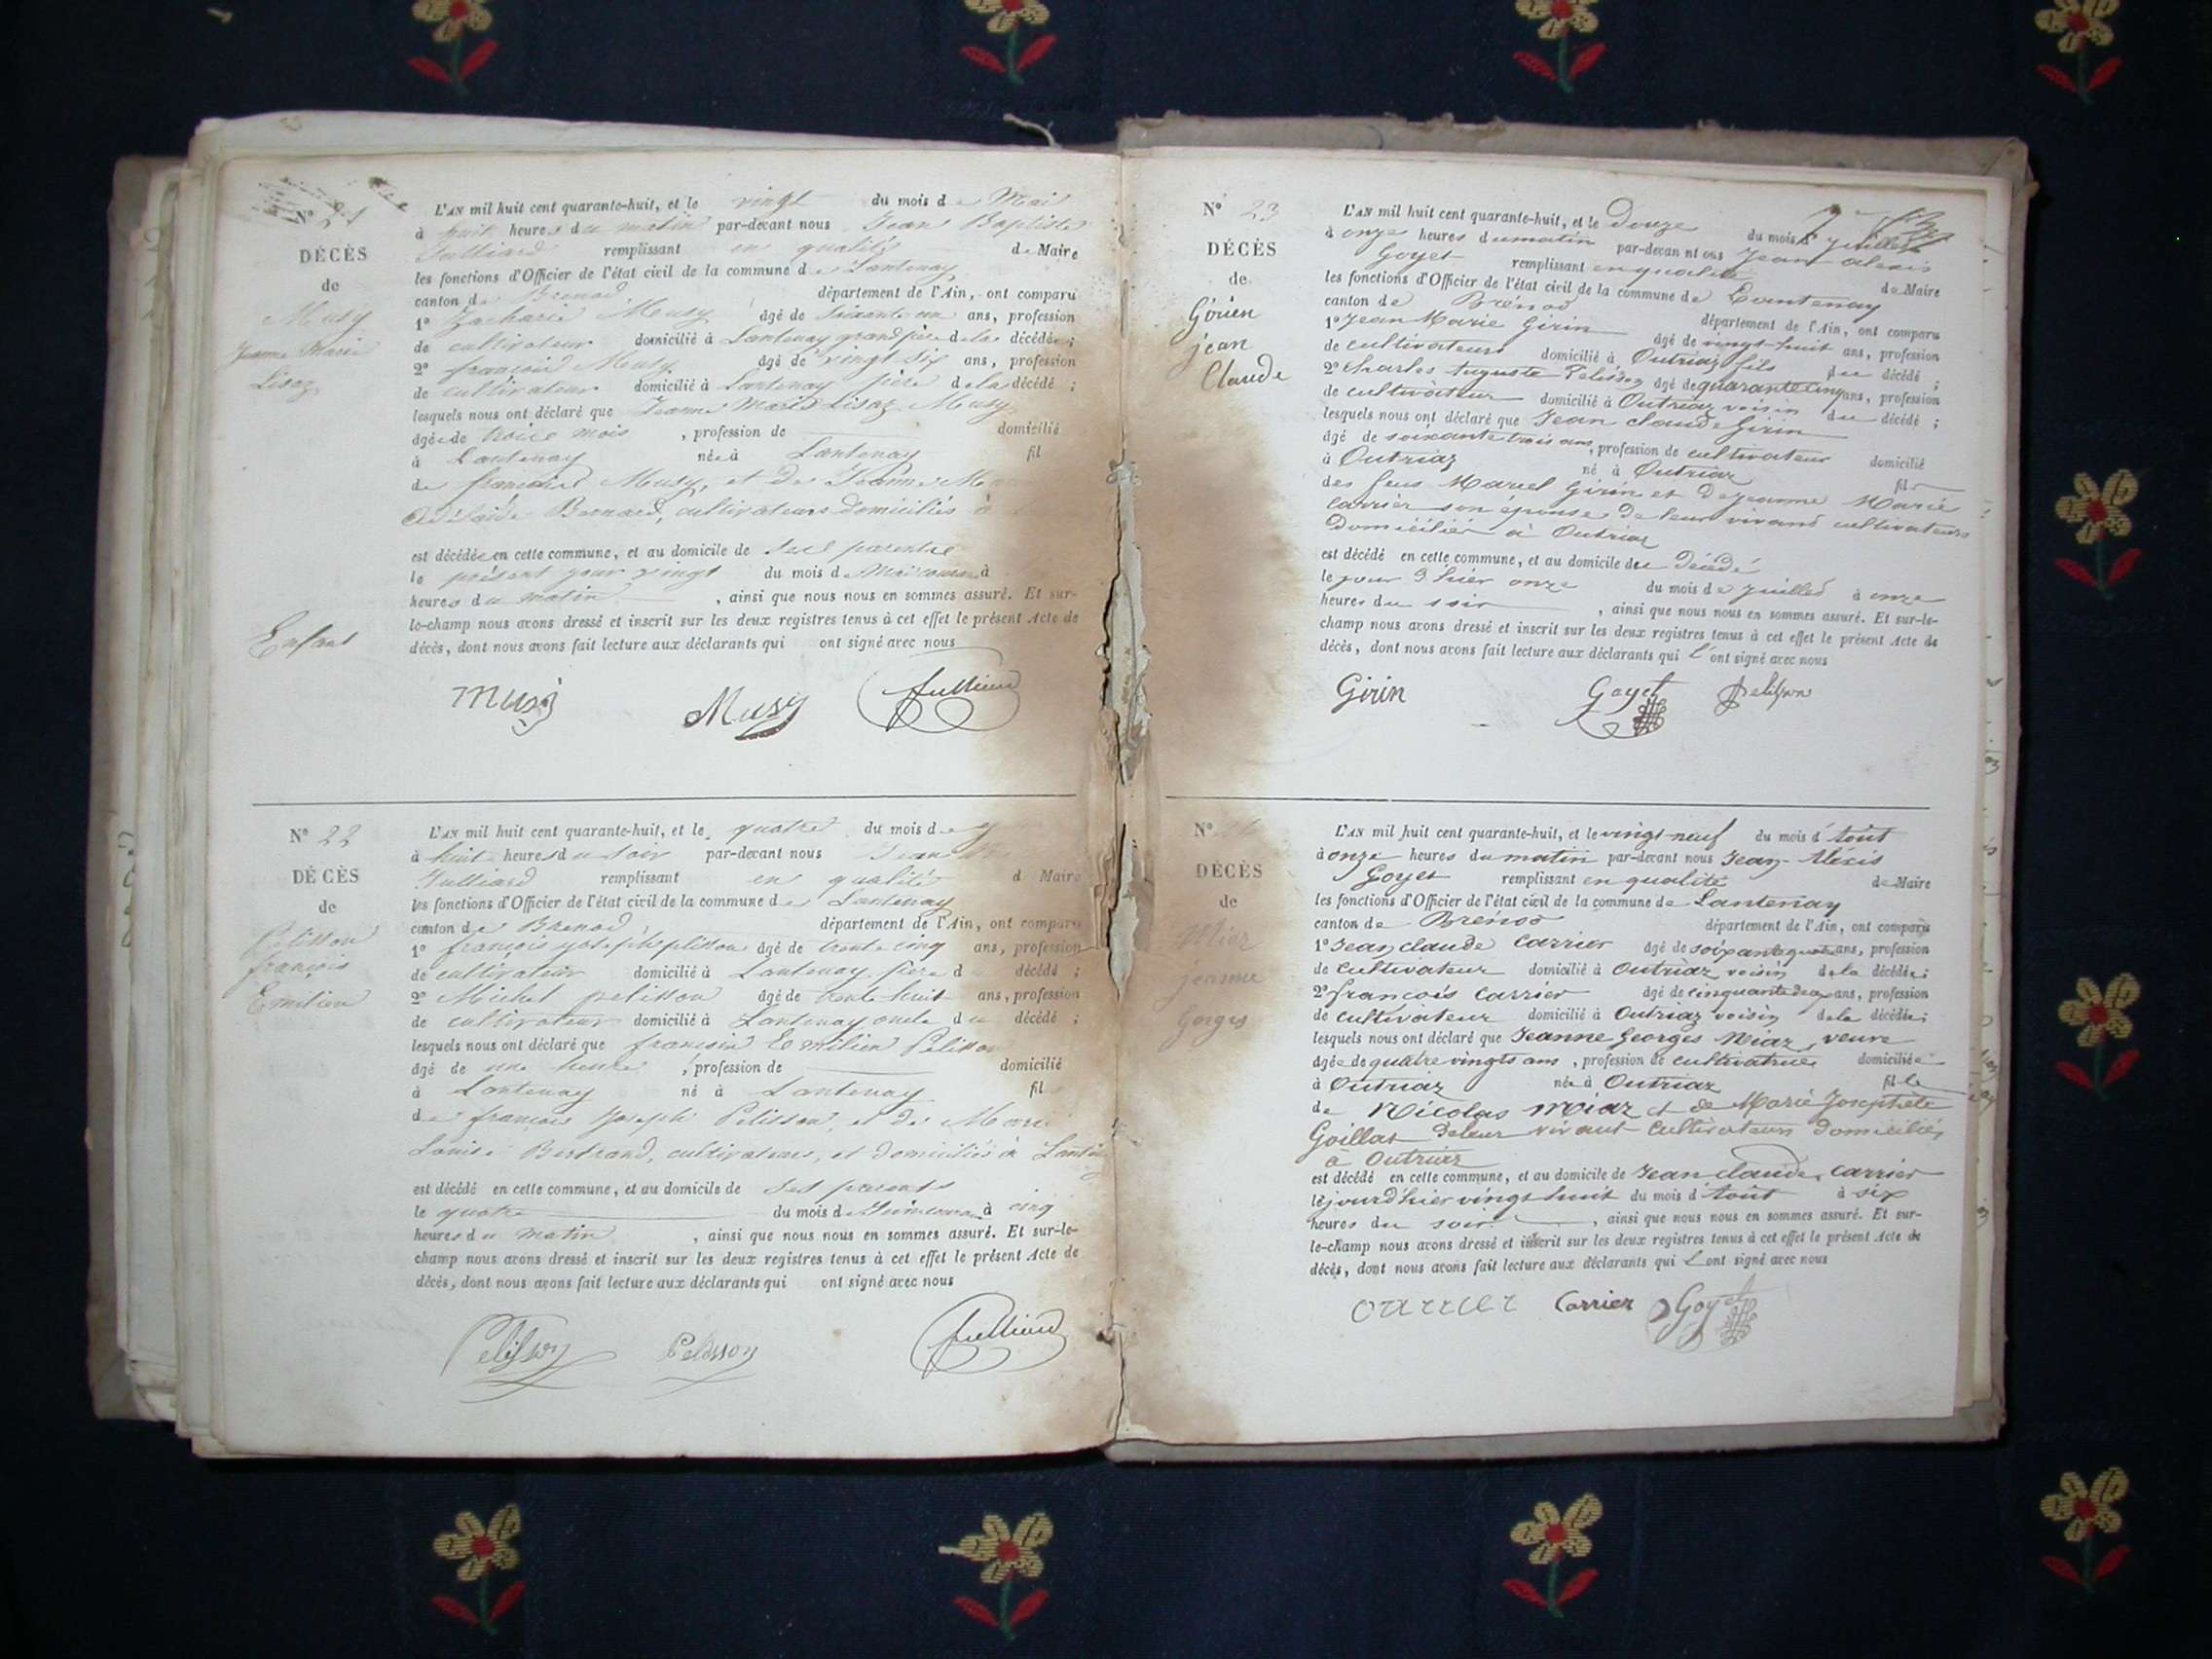 N° 21
DÉCÈS
de
Musy
Jeanne Marie
Lisaz
Enfant
L'AN mil huit cent quarante-huit, et le vingt du mois de Mai
à huit heures du matin par-devant nous Jean Baptiste
Julliard remplissant en qualité de Maire
les fonctions d'Officier de l'état civil de la commune de Lantenay
canton de Brenod département de l'Ain, ont comparu
1° Zacharie Musy âgé de soixante un ans, profession
de cultivateur domicilié à Lantenay grand père de la décédée ;
2° françois Musy âgé de vingt six ans, profession
de cultivateur domicilié à Lantenay père de la décédé ;
lesquels nous ont déclaré que Jeanne Marie Lisaz Musy
âgée de trois mois , profession de domicilié
à Lantenay née à Lantenay fil
de françois Musy, et de Jeanne M
Adélaïde Bernard, cultivateurs domiciliés à
est décédée en cette commune, et au domicile de ses parents
le présent jour vingt du mois de Mai courant à
heures du matin , ainsi que nous nous en sommes assuré. Et sur-
le-champ nous avons dressé et inscrit sur les deux registres tenus à cet effet le présent Acte de
décès, dont nous avons fait lecture aux déclarants qui ont signé avec nous
Musy Musy Julliard
N° 22
DÉCÈS
de
Pelisson
françois
Emilien
L'AN mil huit cent quarante-huit, et le quatre du mois de
à huit heures du soir par-devant nous Jean
Julliard remplissant en qualité d Maire
les fonctions d'Officier de l'état civil de la commune de Lantenay
canton de Brenod département de l'Ain, ont comparu
1° françois joseph plisson âgé de trente cinq ans, profession
de cultivateur domicilié à Lantenay père d décédé ;
2° Michel pelisson âgé de trente huit ans, profession
de cultivateur domicilié à Lantenay oncle du décédé ;
lesquels nous ont déclaré que françois Emilien Pelisson
âgé de une heure , profession de domicilié
à Lantenay né à Lantenay fil
de françois Joseph Pelisson, et de Marie
Louise Bertrand, cultivateurs, et domiciliés à Lanten
est décédé en cette commune, et au domicile de ses parents
le quatre du mois de Juin courant à cinq
heures du matin , ainsi que nous nous en sommes assuré. Et sur-le-
champ nous avons dressé et inscrit sur les deux registres tenus à cet effet le présent Acte de
décès, dont nous avons fait lecture aux déclarants qui ont signé avec nous
Pelisson Pelisson Julliard
N° 23
DÉCÈS
de
Girin
jean
Claude
L'AN mil huit cent quarante-huit, et le douze du mois de juillet
à onze heures du matin par-devant nous Jean alexis
Goyet remplissant en qualité de Maire
les fonctions d'Officier de l'état civil de la commune de Lantenay
canton de Brénod département de l'Ain, ont comparu
1° Jean Marie Girin âgé de vingt-huit ans, profession
de cultivateur domicilié à Outriaz fils du décédé ;
2° Charles Auguste Pelisson âgé de quarante cinq ans, profession
de cultivateur domicilié à Outriaz voisin du décédé ;
lesquels nous ont déclaré que Jean claude Girin
âgé de soixante trois ans, profession de cultivateur domicilié
à Outriaz né à Outriaz fil
des feus Marcel Girin et de jeanne Marie
Carrier son épouse de leur vivant cultivateurs
domiciliés à Outriaz
est décédé en cette commune, et au domicile du décédé
le jour d'hier onze du mois de juillet à onze
heures du soir , ainsi que nous nous en sommes assuré. Et sur-le-
champ nous avons dressé et inscrit sur les deux registres tenus à cet effet le présent Acte de
décès, dont nous avons fait lecture aux déclarants qui l'ont signé avec nous
Girin Goyet Pelisson
N°
DÉCÈS
de
Miaz
jeanne
Gorges
L'AN mil huit cent quarante-huit, et le vingt-neuf du mois d'août
à onze heures du matin par-devant nous Jean-Alexis
Goyet remplissant en qualité de Maire
les fonctions d'Officier de l'état civil de la commune de Lantenay
canton de Brénod département de l'Ain, ont comparu
1° Jean claude Carrier âgé de soixante quatre ans, profession
de cultivateur domicilié à Outriaz voisin de la décédée ;
2° françois Carrier âgé de cinquante deux ans, profession
de cultivateur domicilié à Outriaz voisin de la décédée ;
lesquels nous ont déclaré que Jeanne Georges Miaz, veuve
âgée de quatre vingts ans , profession de cultivatrice domiciliée
à Outriaz née à Outriaz fille
de Nicolas Miaz et de Marie Josephete
Goillat de leur vivant cultivateurs domiciliés
à Outriaz
est décédé en cette commune, et au domicile de Jean claude Carrier
le jour d'hier vingt huit du mois d'août à six
heures du soir , ainsi que nous nous en sommes assuré. Et sur-
le-champ nous avons dressé et inscrit sur les deux registres tenus à cet effet le présent Acte de
décès, dont nous avons fait lecture aux déclarants qui Lont signé avec nous
carrier Carrier Goyet